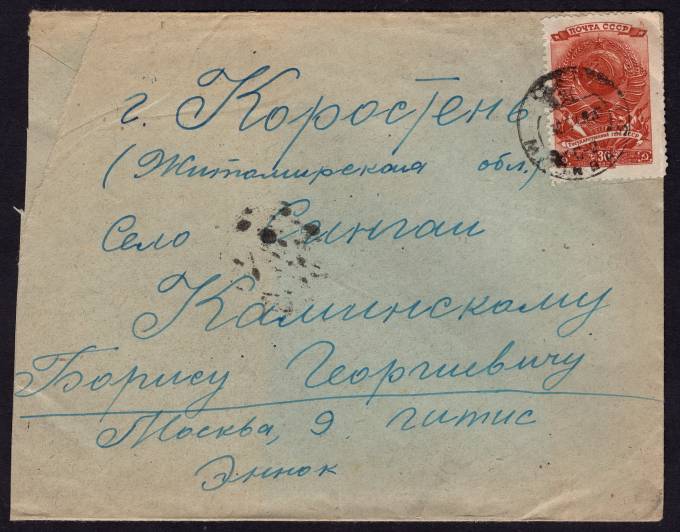 ПОЧТА СССР
г. Коростень
(Житомирская обл.)
Село Сингаи
Каминскому
Борису Георгиевичу
Москва, 9 гитис
Эннок